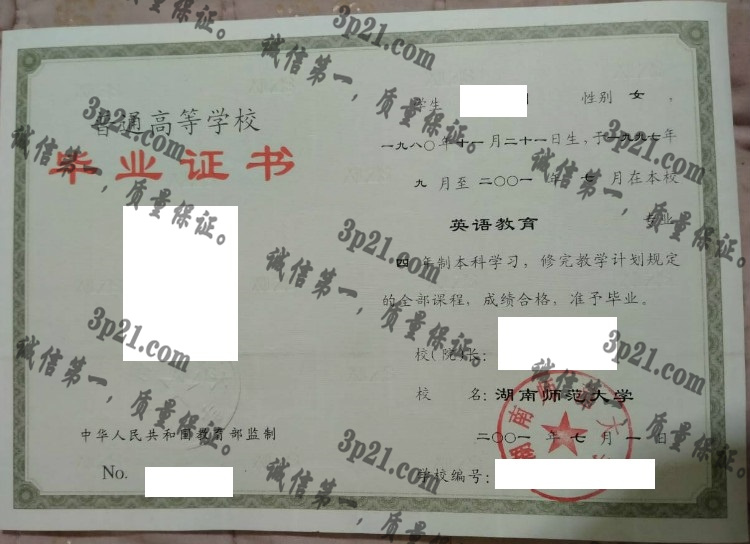 普通高等学校
毕业证书
中华人民共和国教育部监制
No.
学生 性别 女 ，
一九八〇年十一月二十一日生，于一九九七年
九 月至 二〇〇一 年 七 月在本校
英语教育 专业
四 年制本科学习，修完教学计划规定
的全部课程，成绩合格，准予毕业。
校（院）长：
校 名：湖南师范大学
二〇〇一 年 七 月 一 日
学校编号：
湖南师范大学
3p21.com
诚信第一，质量保证。
3p21.com
诚信第一，质量保证。
3p21.com
诚信第一，质量保证。
3p21.com
诚信第一，质量保证。
3p21.com
诚信第一，质量保证。
3p21.com
诚信第一，质量保证。
3p21.com
诚信第一，质量保证。
3p21.com
诚信第一，质量保证。